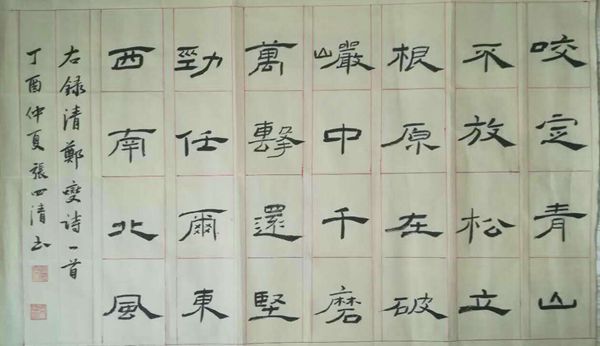 咬定青山
不放松立
根原在破
巖中千磨
萬擊還堅
勁任爾東
西南北風
右錄清鄭燮詩一首
丁酉仲夏張四清书